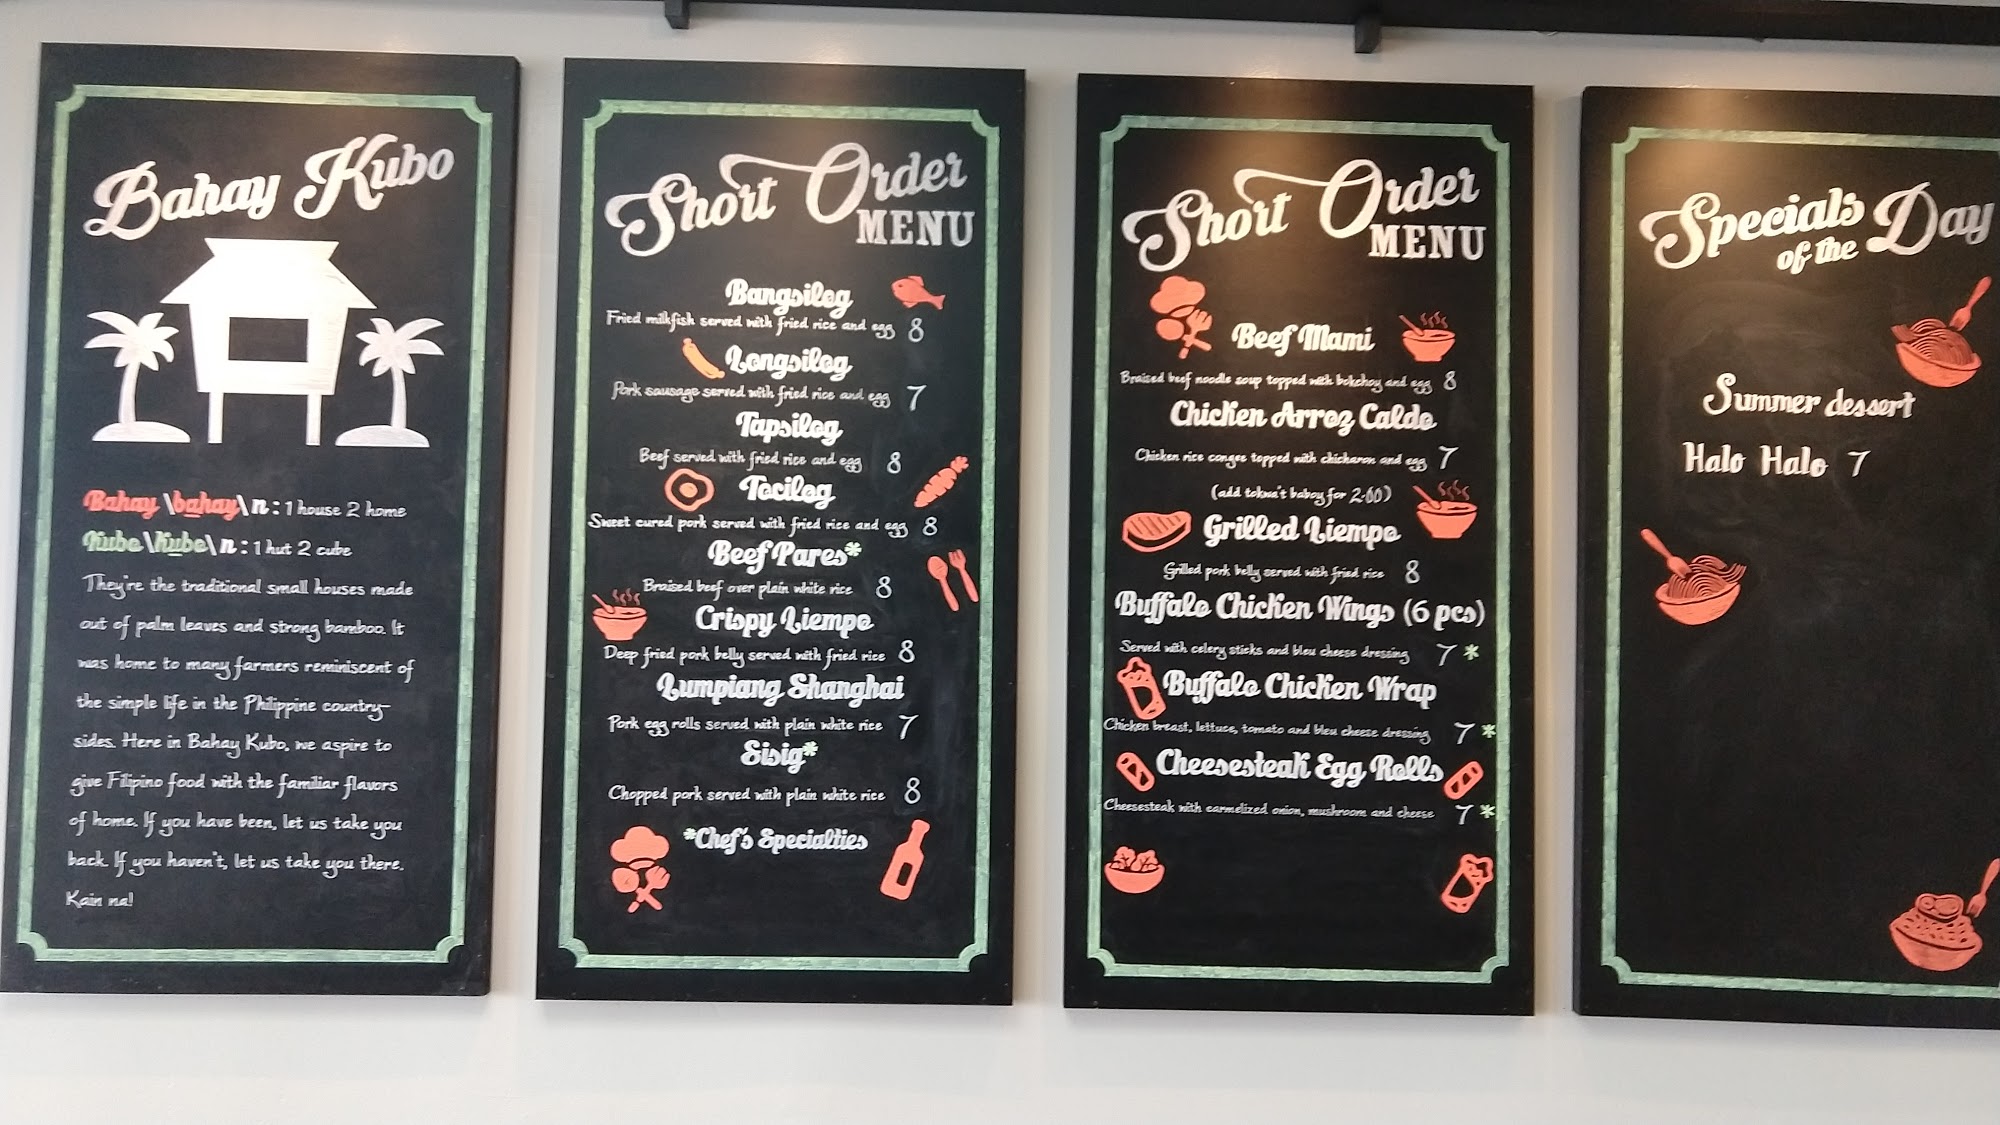 Bahay Kubo
Bahay \bahay\ n : 1 house 2 home
Kubo \Kubo\ n : 1 hut 2 cube
They're the traditional small houses made
out of palm leaves and strong bamboo. It
was home to many farmers reminiscent of
the simple life in the Philippine country-
sides. Here in Bahay Kubo, we aspire to
give Filipino food with the familiar flavors
of home. If you have been, let us take you
back. If you haven't, let us take you there.
Kain na!
Short Order
MENU
Bangsilog
Fried milkfish served with fried rice and egg 8
Longsilog
Pork sausage served with fried rice and egg 7
Tapsilog
Beef served with fried rice and egg 8
Tocilog
Sweet cured pork served with fried rice and egg 8
Beef Pares*
Braised beef over plain white rice 8
Crispy Liempo
Deep fried pork belly served with fried rice 8
Lumpiang Shanghai
Pork egg rolls served with plain white rice 7
Sisig*
Chopped pork served with plain white rice 8
*Chef's Specialties
Short Order
MENU
Beef Mami
Braised beef noodle soup topped with bokchoy and egg 8
Chicken Arroz Caldo
Chicken rice congee topped with chicharon and egg 7
(add tokwa't baboy for 2.00)
Grilled Liempo
Grilled pork belly served with fried rice 8
Buffalo Chicken Wings (6 pcs)
Served with celery sticks and bleu cheese dressing 7 *
Buffalo Chicken Wrap
Chicken breast, lettuce, tomato and bleu cheese dressing 7 *
Cheesesteak Egg Rolls
Cheesesteak with carmelized onion, mushroom and cheese 7 *
Specials
of the Day
Summer dessert
Halo Halo 7